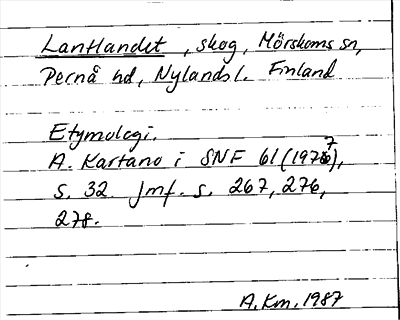 Lantlandet, skog, Mörskoms sn,
Pernå hd, Nylands l. Finland
Etymologi.
A. Kartano i SNF 61 (1977),
s. 32. Jmf. s. 267, 276,
278.
A. Km. 1987